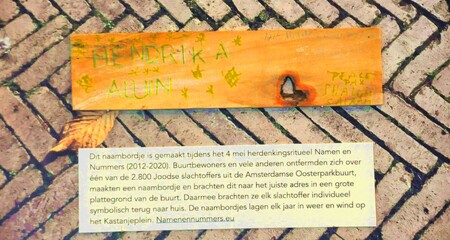 HENDRIKA
ALUIN
Dit naambordje is gemaakt tijdens het 4 mei herdenkingsritueel Namen en
Nummers (2012-2020). Buurtbewoners en vele anderen ontfermden zich over
één van de 2.800 Joodse slachtoffers uit de Amsterdamse Oosterparkbuurt,
maakten een naambordje en brachten dit naar het juiste adres in een grote
plattegrond van de buurt. Daarmee brachten ze elk slachtoffer individueel
symbolisch terug naar huis. De naambordjes lagen elk jaar in weer en wind op
het Kastanjeplein. Namenennummers.eu